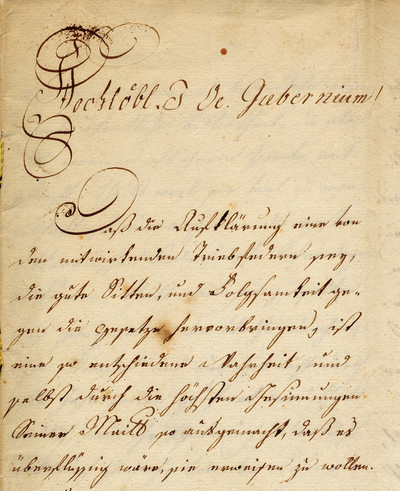 Hochlöbl. I. Oe. Gubernium!
Daß die Aufklärung eine von
den mitwirkenden Triebfedern sey,
die gute Sitten, und Folgsamkeit ge-
gen die Gesetze hervorbringen, ist
eine so entschiedene Wahrheit, und
selbst durch die höchsten Gesinnungen
Seiner Maitt so ausgemacht, daß es
überflüssig wäre, sie erweisen zu wollen.